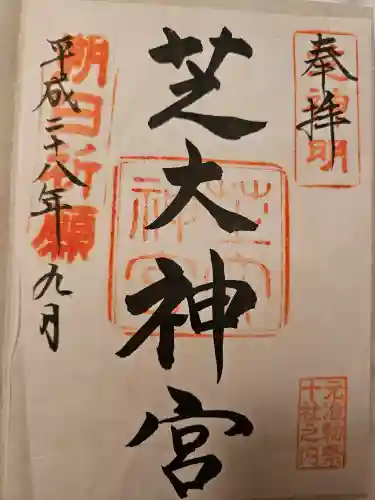 奉拝
芝神明
元准勅祭
十社之内
芝大神宮
芝大
神宮
平成二十八年九月
朔日祈願